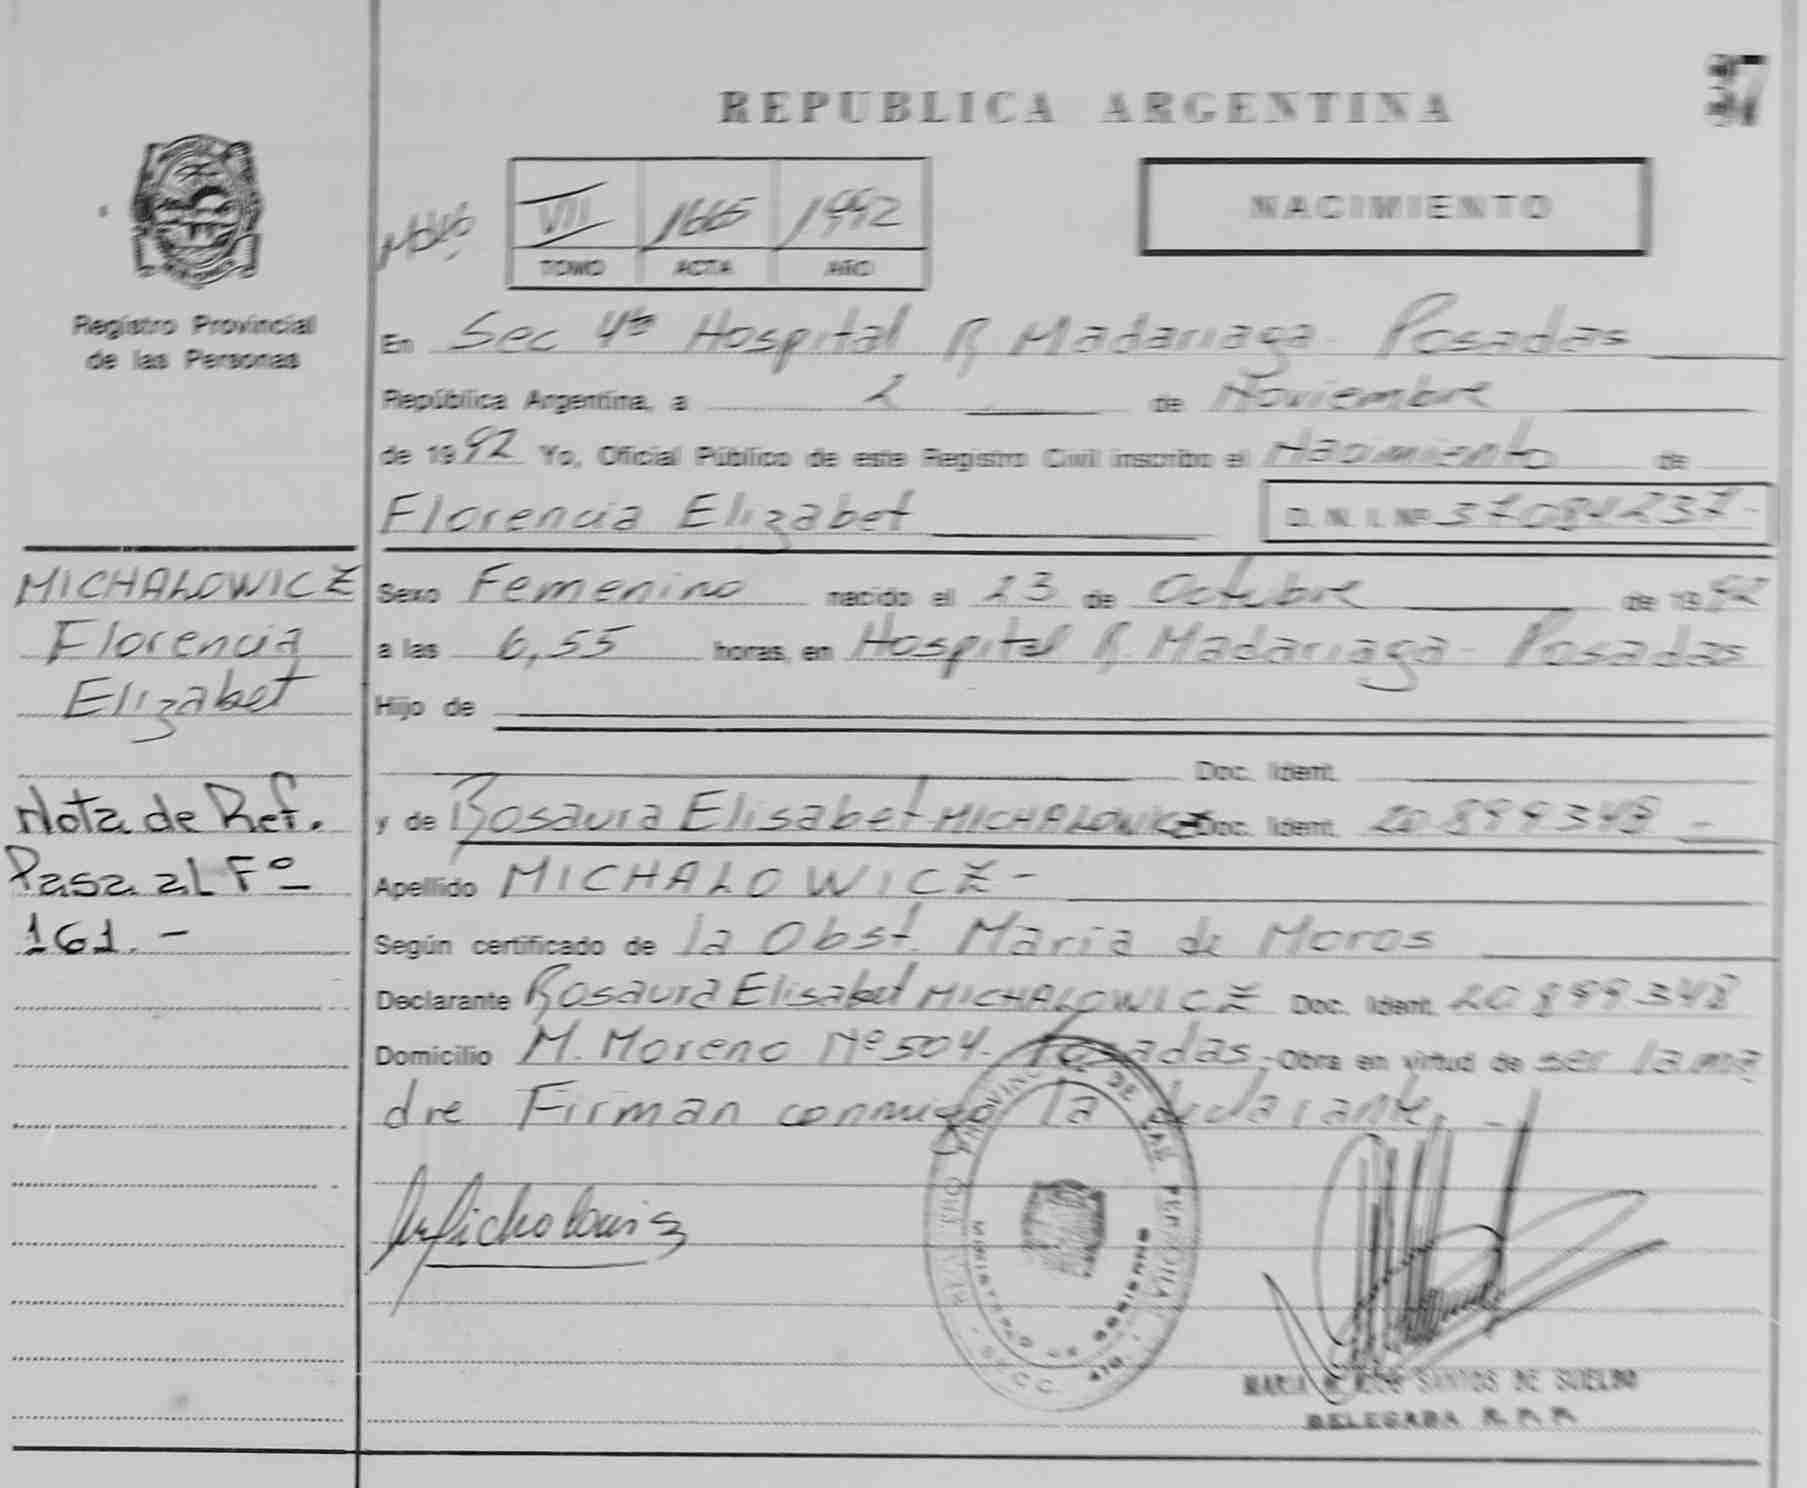 37
REPUBLICA ARGENTINA
VII 1665 1992
TOMO ACTA AÑO
NACIMIENTO
Registro Provincial
de las Personas
En Sec 4ta Hospital R. Madariaga - Posadas
República Argentina, a 2 de Noviembre
de 1992 Yo, Oficial Público de este Registro Civil inscribo el Nacimiento de
Florencia Elizabet D. N. I. Nº 37084237-
MICHALOWICZ
Florencia
Elizabet
Nota de Ref.
Pasa al Fº
161.-
Sexo Femenino nacido el 23 de Octubre de 1992
a las 6,55 horas, en Hospital R. Madariaga - Posadas
Hijo de
Doc. Ident.
y de Rosaura Elisabet MICHALOWICZ Doc. Ident. 20.899.348 -
Apellido MICHALOWICZ -
Según certificado de la Obst. Maria de Moros
Declarante Rosaura Elisabet MICHALOWICZ Doc. Ident. 20.899.348
Domicilio M. Moreno Nº 504. Posadas.- Obra en virtud de ser la ma
dre Firman conmigo la declarante. -
REGISTRO PROVINCIAL DE LAS PERSONAS
MINISTERIO DE GOBIERNO
MARIA SANTOS DE SUELDO
DELEGADA R. P. P.